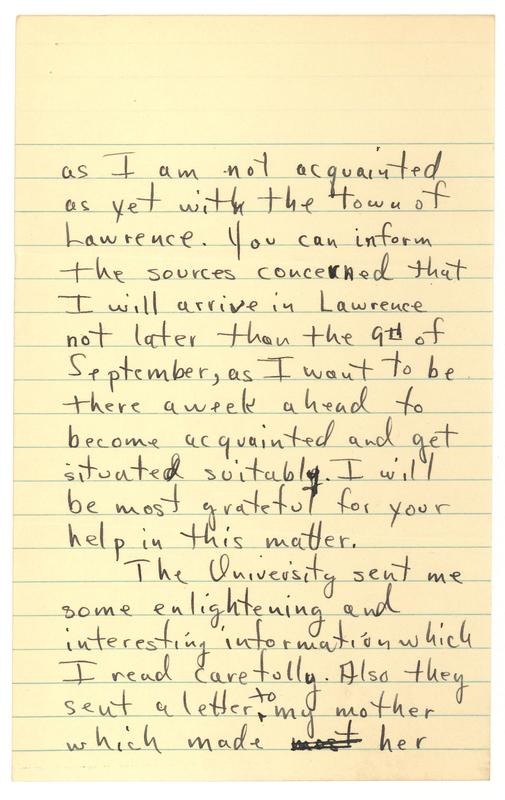 as I am not acquainted
as yet with the town of
Lawrence. You can inform
the sources concerned that
I will arrive in Lawrence
not later than the 9th of
September, as I want to be
there a week ahead to
become acquainted and get
situated suitably. I will
be most grateful for your
help in this matter.
The University sent me
some enlightening and
interesting information which
I read carefully. Also they
sent a letter to my mother
which made most her